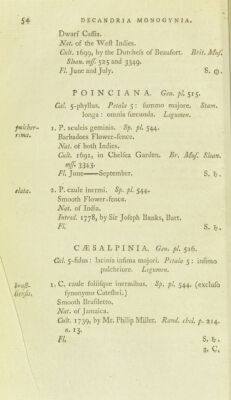 54 DECANDRIA MONOGYNIA.
Dwarf Cassia.
Nat. of the West Indies.
Cult. 1699, by the Dutchess of Beaufort. Brit. Mus.
Sloan. mss. 525 and 3349.
Fl. June and July. S. ☉.
POINCIANA. Gen. pl. 515.
Cal. 5-phyllus. Petala 5: summo majore. Stam.
longa: omnia fœcunda. Legumen.
pulcher-
rima.
1. P. aculeis geminis. Sp. pl. 544.
Barbadoes Flower-fence.
Nat. of both Indies.
Cult. 1691, in Chelsea Garden. Br. Mus. Sloan.
mss. 3343.
Fl. June——September. S. ♄.
elata. 2. P. caule inermi. Sp. pl. 544.
Smooth Flower-fence.
Nat. of India.
Introd. 1778, by Sir Joseph Banks, Bart.
Fl. S. ♄.
CÆSALPINIA. Gen. pl. 516.
Cal. 5-fidus: lacinia infima majori. Petala 5: infimo
pulchriore. Legumen.
brasi-
liensis.
1. C. caule foliisque inermibus. Sp. pl. 544. (exclusο
synonymo Catesbei.)
Smooth Brasiletto.
Nat. of Jamaica.
Cult. 1739, by Mr. Philip Miller. Rand. chel. p. 214.
n. 13.
Fl. S. ♄.
2. C.